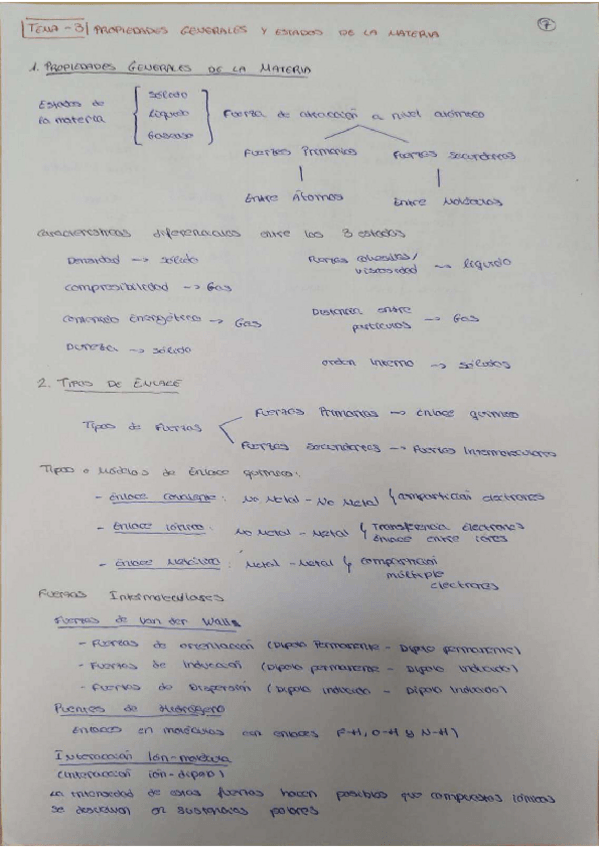 TEMA - 3 PROPIEDADES GENERALES Y ESTADOS DE LA MATERIA
1. PROPIEDADES GENERALES DE LA MATERIA
Estados de la materia
Sólido
Líquido
Gaseoso
Fuerza de atracción a nivel atómico
Fuerzas Primarias
Fuerzas Secundarias
Entre Átomos
Entre Moléculas
Características diferenciales entre los 3 estados
Densidad → sólido
Fuerzas cohesivas/ viscosidad → líquido
Compresibilidad → Gas
Contenido Energético → Gas
Distancia entre partículas → Gas
Dureza → sólido
orden interno → sólidos
2. TIPOS DE ENLACE
Tipos de Fuerzas
Fuerzas Primarias → enlace químico
Fuerzas Secundarias → Fuerzas Intermoleculares
Tipos o Modelos de Enlace químico:
- Enlace Covalente: No Metal - No Metal ↳ compartición electrones
- Enlace Iónico: No Metal - Metal ↳ Transferencia electrones
Enlace entre iones
- Enlace Metálico: Metal - Metal ↳ compartición
múltiple
electrones
Fuerzas Intermoleculares
Fuerzas de Van der Walls
- Fuerzas de orientación (Dipolo Permanente - Dipolo permanente)
- Fuerzas de Inducción (Dipolo permanente - Dipolo Inducido)
- Fuerzas de Dispersión (Dipolo Inducido - Dipolo Inducido)
Puentes de Hidrógeno
Enlaces en moléculas con enlaces F-H, O-H y N-H)
Interacción Ión-molécula
(Interacción ión-dipolo)
La intensidad de estas fuerzas hacen posibles que compuestos iónicos
se disuelvan en sustancias polares